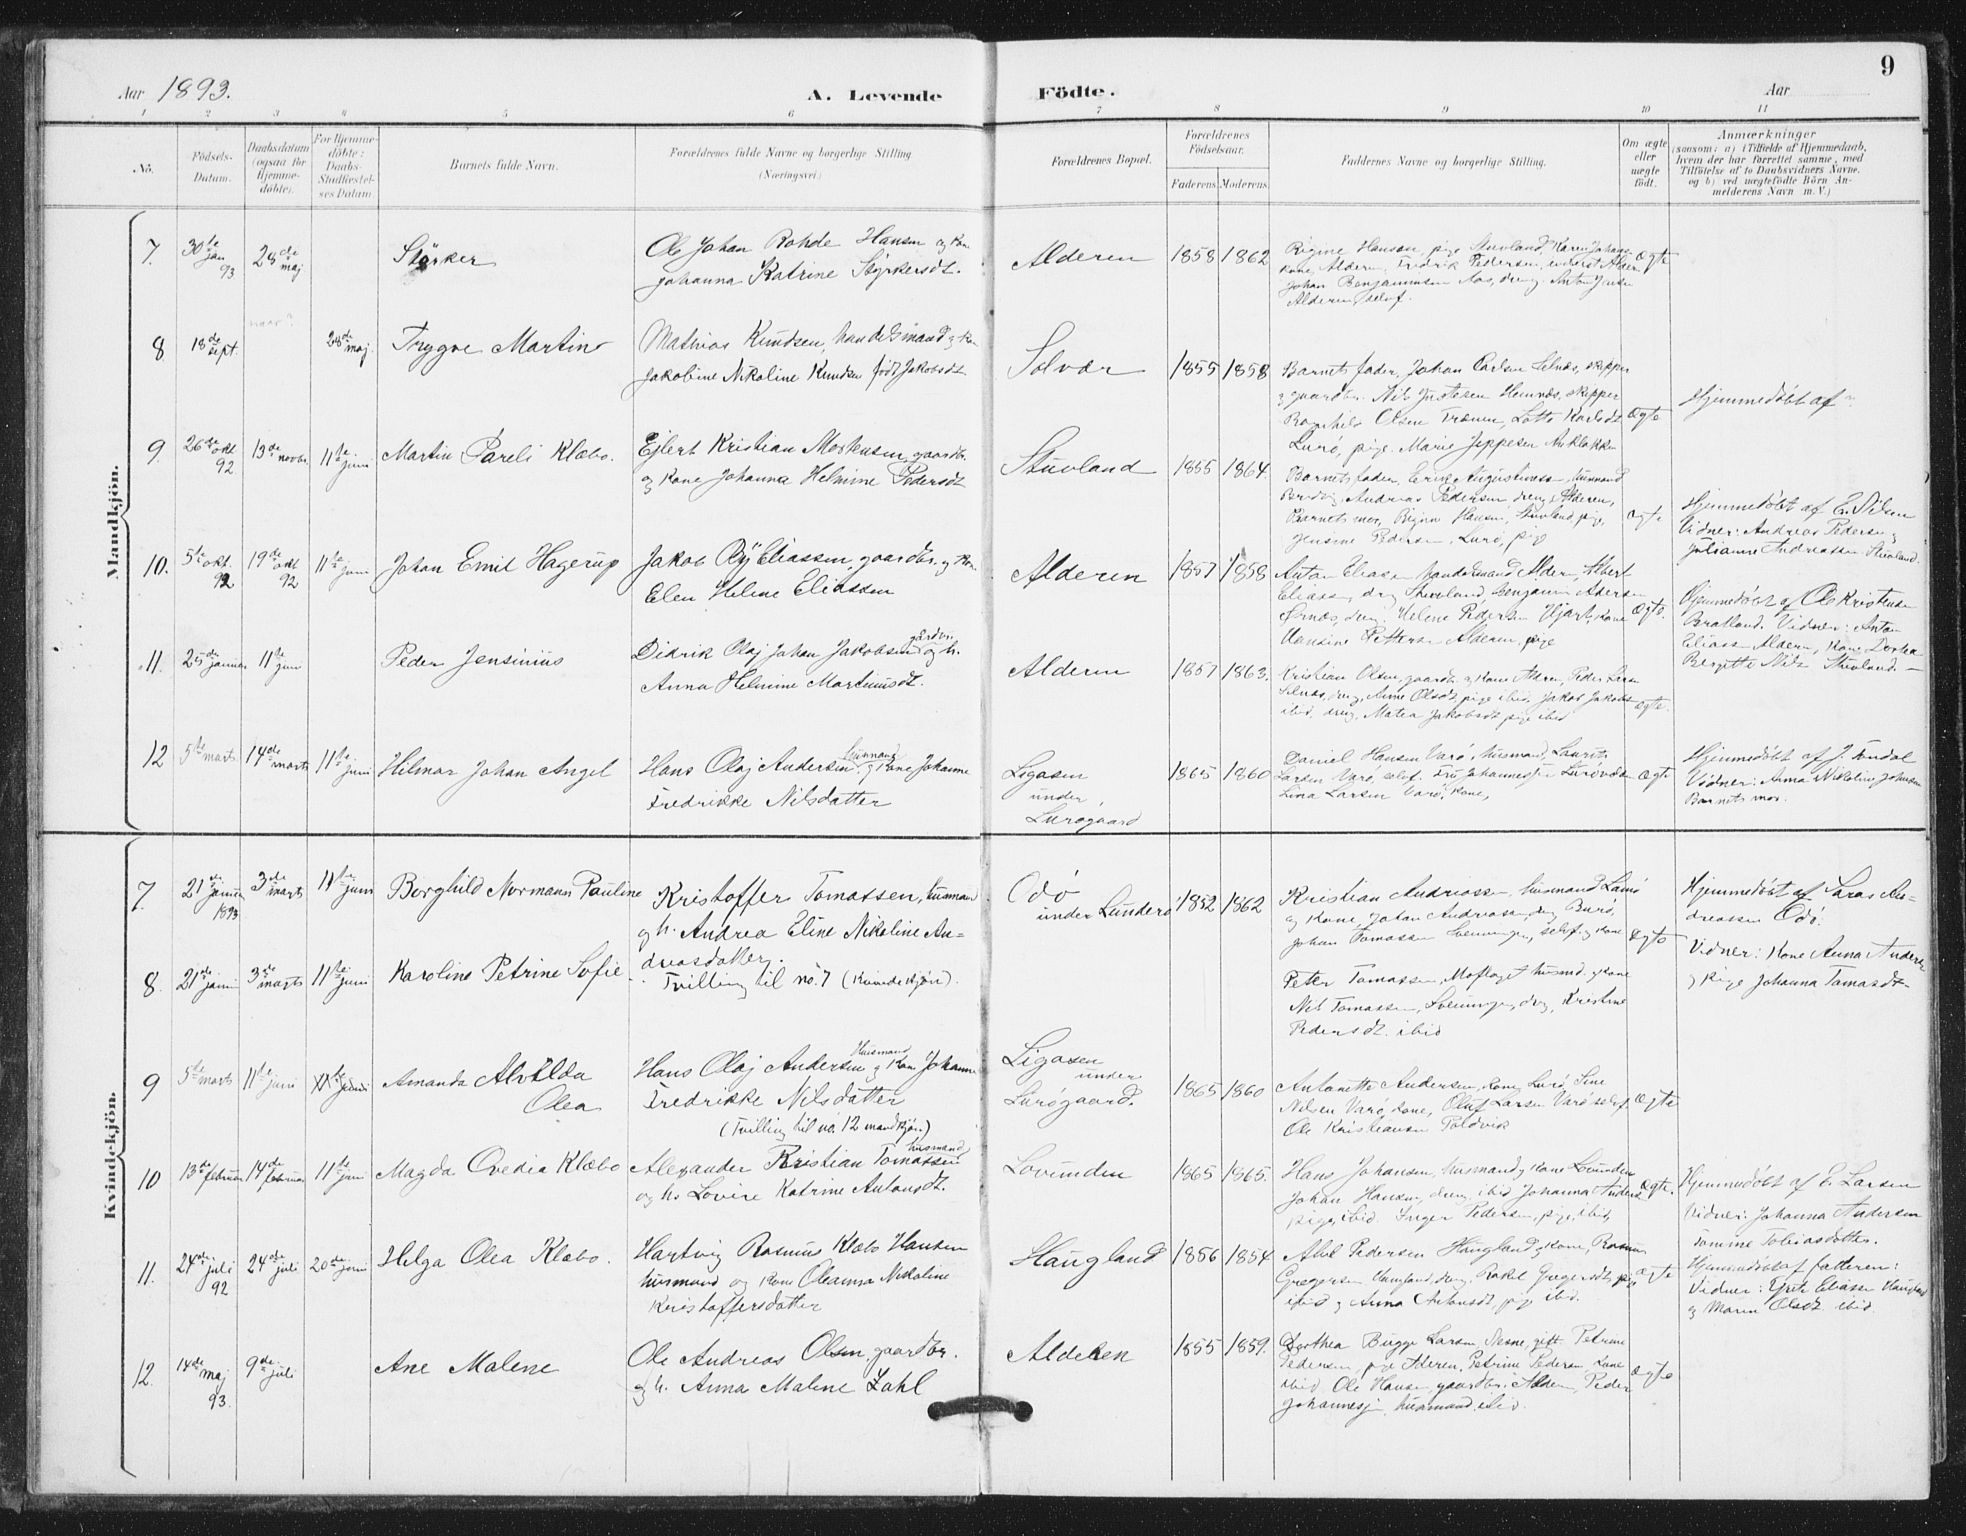 Aar 1893.
A. Levende Födte.
Aar
9
1 2 3 4 5 6 7 8 9 10 11
No.
Födsels-Datum.
Daabsdatum (ogsaa for Hjemme-döbte).
For Hjemme-döbte: Daabs-Stadfæstel-ses Datum.
Barnets fulde Navn.
Forældrenes fulde Navne og borgerlige Stilling
(Næringsvei)
Forældrenes Bopæl.
Forældrenes Födselsaar.
Faderens. Moderens.
Faddernes Navne og borgerlige Stilling.
Om ægte eller uægte födt.
Anmærkninger
(saasom: a) i Tilfælde af Hjemmedaab,
hvem der har forrettet samme, med
Tilföielse af to Daabsvidners Navne.
og b) ved uægtefödte Börn An-
melderens Navn m. V.)
Mandkjön.
7 30te jan 93 28de maj Stärker
Ole Johan Rohde Hansen og kone
Johanna Katrine Styrkersdt.
Alderen 1858 1862
Regine Hansen, pige Stuvland, Karen Johans
kone, Alderen, Fredrik Pedersen, Alderen
Johan Benjaminsen Aas, dreng. Anton Jensen
Alderen, selvf.
Ægte
8 18de sept. naar? 28de maj Trygve Martin
Mathias Knudsen, handelsmand og kone
Jakobine Nikoline Knudsen født Jakobsdt
Solvær 1855 1858
Barnets fader, Johan Carlsen Selnæs, skipper
og gaardbr. Nils Justesen Hemnæs, skipper
Ragnhild Olsen Trænen, Lotte Karlsdt
Lurö, pige. Marie Jeppesen
Ægte
Hjemmedöbt af?
9. 26de okt 92 13de novbr. 11te juni Martin Pareli Klæbo.
Ejlert Kristian Mortensen, gaardbr.
og kone Johanna Helmine Pedersdt
Stuvland 1855 1864.
Barnets fader, Erik Augustinussen, husmand
Andreas Pedersen dreng, Alderen,
Barnets mor, Regine Hansen, Stuvland, pige,
Jensine Pedersen, Lurö, pige
ægte
Hjemmedöbt af E. Nilsen
Vidner: Andreas Pedersen og
Julianne Andreassen Stuvland.
10. 5te okt 92 19de okt 92 11te juni Johan Emil Hagerup
Jakob Rÿ Eliassen, gaardbr. og kone
Elen Helene Eliassen
Alderen 1857 1858
Anton Eliasen handelsmand Alderen, Albert
Eliassen, dreng Stuvland, Benjamin Andersen
dreng, Helene Pedersen Hjart, kone
Hansine Pettersen Alderen, pige
Ægte.
Hjemmedöbt af Ole Kristensen
Bratland. Vidner: Anton
Eliassen Alderen, kone Dorthea
Bergitte Nils Stuvland.
11. 25de januar 11te juni Peder Jensinius
Didrik Olaj Johan Jakobsen gårdbr. og h.
Anna Helmine Martinusdt.
Alderen 1857 1863.
Kristian Olsen, gaardbr. og kone Alderen, Peder Larsen
Selnæs, dreng, Anne Olsdt, pige ibid. Jakob Jakobs
ibid, dreng, Matea Jakobsdt pige ibid
ægte.
12 5te marts 14de marts 11te juni Hilmar Johan Angel
Hans Olaj Andersen, husmand og kone Johanne
Fredrikke Nilsdatter
Ligåsen
under
Lurögaard
1865 1860
Daniel Hansen Varö, husmand, Laurits
Larsen Varö, selvf. Johannesen
Lina Larsen Varö, kone,
Ægte
Hjemmedöbt af J.
Vidner: Anna Nikoline Johnsen
Barnets mor.
Kvindekjön.
7 21de januar 1893. 3de marts 11te juni Borghild Normann Pauline
Kristoffer Tomassen, husmand
og h. Andrea Eline Nikoline An=
dreasdatter.
Odö
under Lunderö
1852 1862
Kristian Andreassen, husmand
og kone, Johan Andreassen, dreng
Johan Tomassen, selvf. og kone
ægte
Hjemmedöbt af Lars An=
dreassen Odö.
8. 21de januar 3de marts 11te juni Karoline Petrine Sofie
Tvilling til no. 7 (kvindekjön).
Peter Tomassen, husmd. og kone
Nils Tomassen, dreng, Kristine
Pedersdt. ibid
Vidner: Kone Anna Andersen
og pige Johanna Tomasdt.
9 5te marts 11te juni 11te juni Amanda Alvilda Olea
Hans Olaj Andersen, Husmand og kone Johanne
Fredrikke Nilsdatter
(Tvilling til no. 12 mandkjön)
Ligåsen
under
Lurögaard.
1865 1860
Antonette Andersen, kone, Lurö, Sine
Nilsen Varö, kone, Oluf Larsen Varö selvf.
Ole Kristiansen Toldvik
Ægte
10 13de februar 14de februar 11te juni Magda Ovedia Klæbo
Alexander Kristian Tomassen husmand
og h. Lovise Katrine Antonsdt.
Lovunden 1865 1865.
Hans Johansen, husmand og kone Lovunden
Johan Hansen, dreng, ibid Johanna Anders
pige, ibid. Inger Pedersen, pige, ibid,
ægte.
Hjemmedöbt af E. Larsen
Vidner: Johanna Andersen
Tomine Tobiasdatter.
11. 24de juli 92 24de juli 20de juni Helga Olea Klæbo.
Hartvig Rasmus Klæbo Hansen
husmand og kone Oleanna Nikoline
Kristoffersdatter
Haugland 1856 1854
Abel Pedersen Haugland og kone, Rasmus
Gregersen Haugland, dreng, Rakel Gregersdt, pige
ibid og Anna Antonsdt, pige ibid.
ægte
Hjemmedöbt af fatteren:
Vidner: Grete Eliassen Haugland
og Maren Olsdt ibid.
12. 14de maj 93. 9de juli Ane Malene
Ole Andreas Olsen, gaardbr.
og h. Anna Malene Zahl
Alderen 1855 1859.
Dorthea Bugge Larsen, Nesne, gift Petrine
Pedersen, pige Alderen, Petrine Pedersen kone
ibid, Ole Hansen, gaardbr. Alderen, Peder
Johannesen, husmand, ibid.
ægte